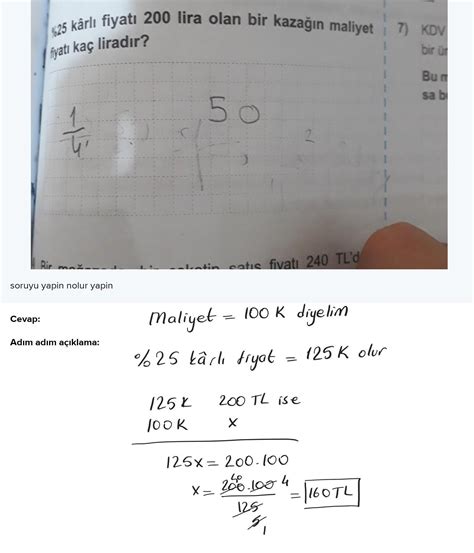 %25 kârlı fiyatı 200 lira olan bir kazağın maliyet
fiyatı kaç liradır?
7) KDV
bir ür
Bu m
sa b
1
4
50
2
Bir satış fiyatı 240 TL'd
soruyu yapin nolur yapin
Cevap:
Adım adım açıklama:
Maliyet = 100 K diyelim
%25 kârlı fiyat = 125K olur
125K 200 TL ise
100K x
125x = 200.100
x = 200.100 40 4 = 160TL
125
5
1